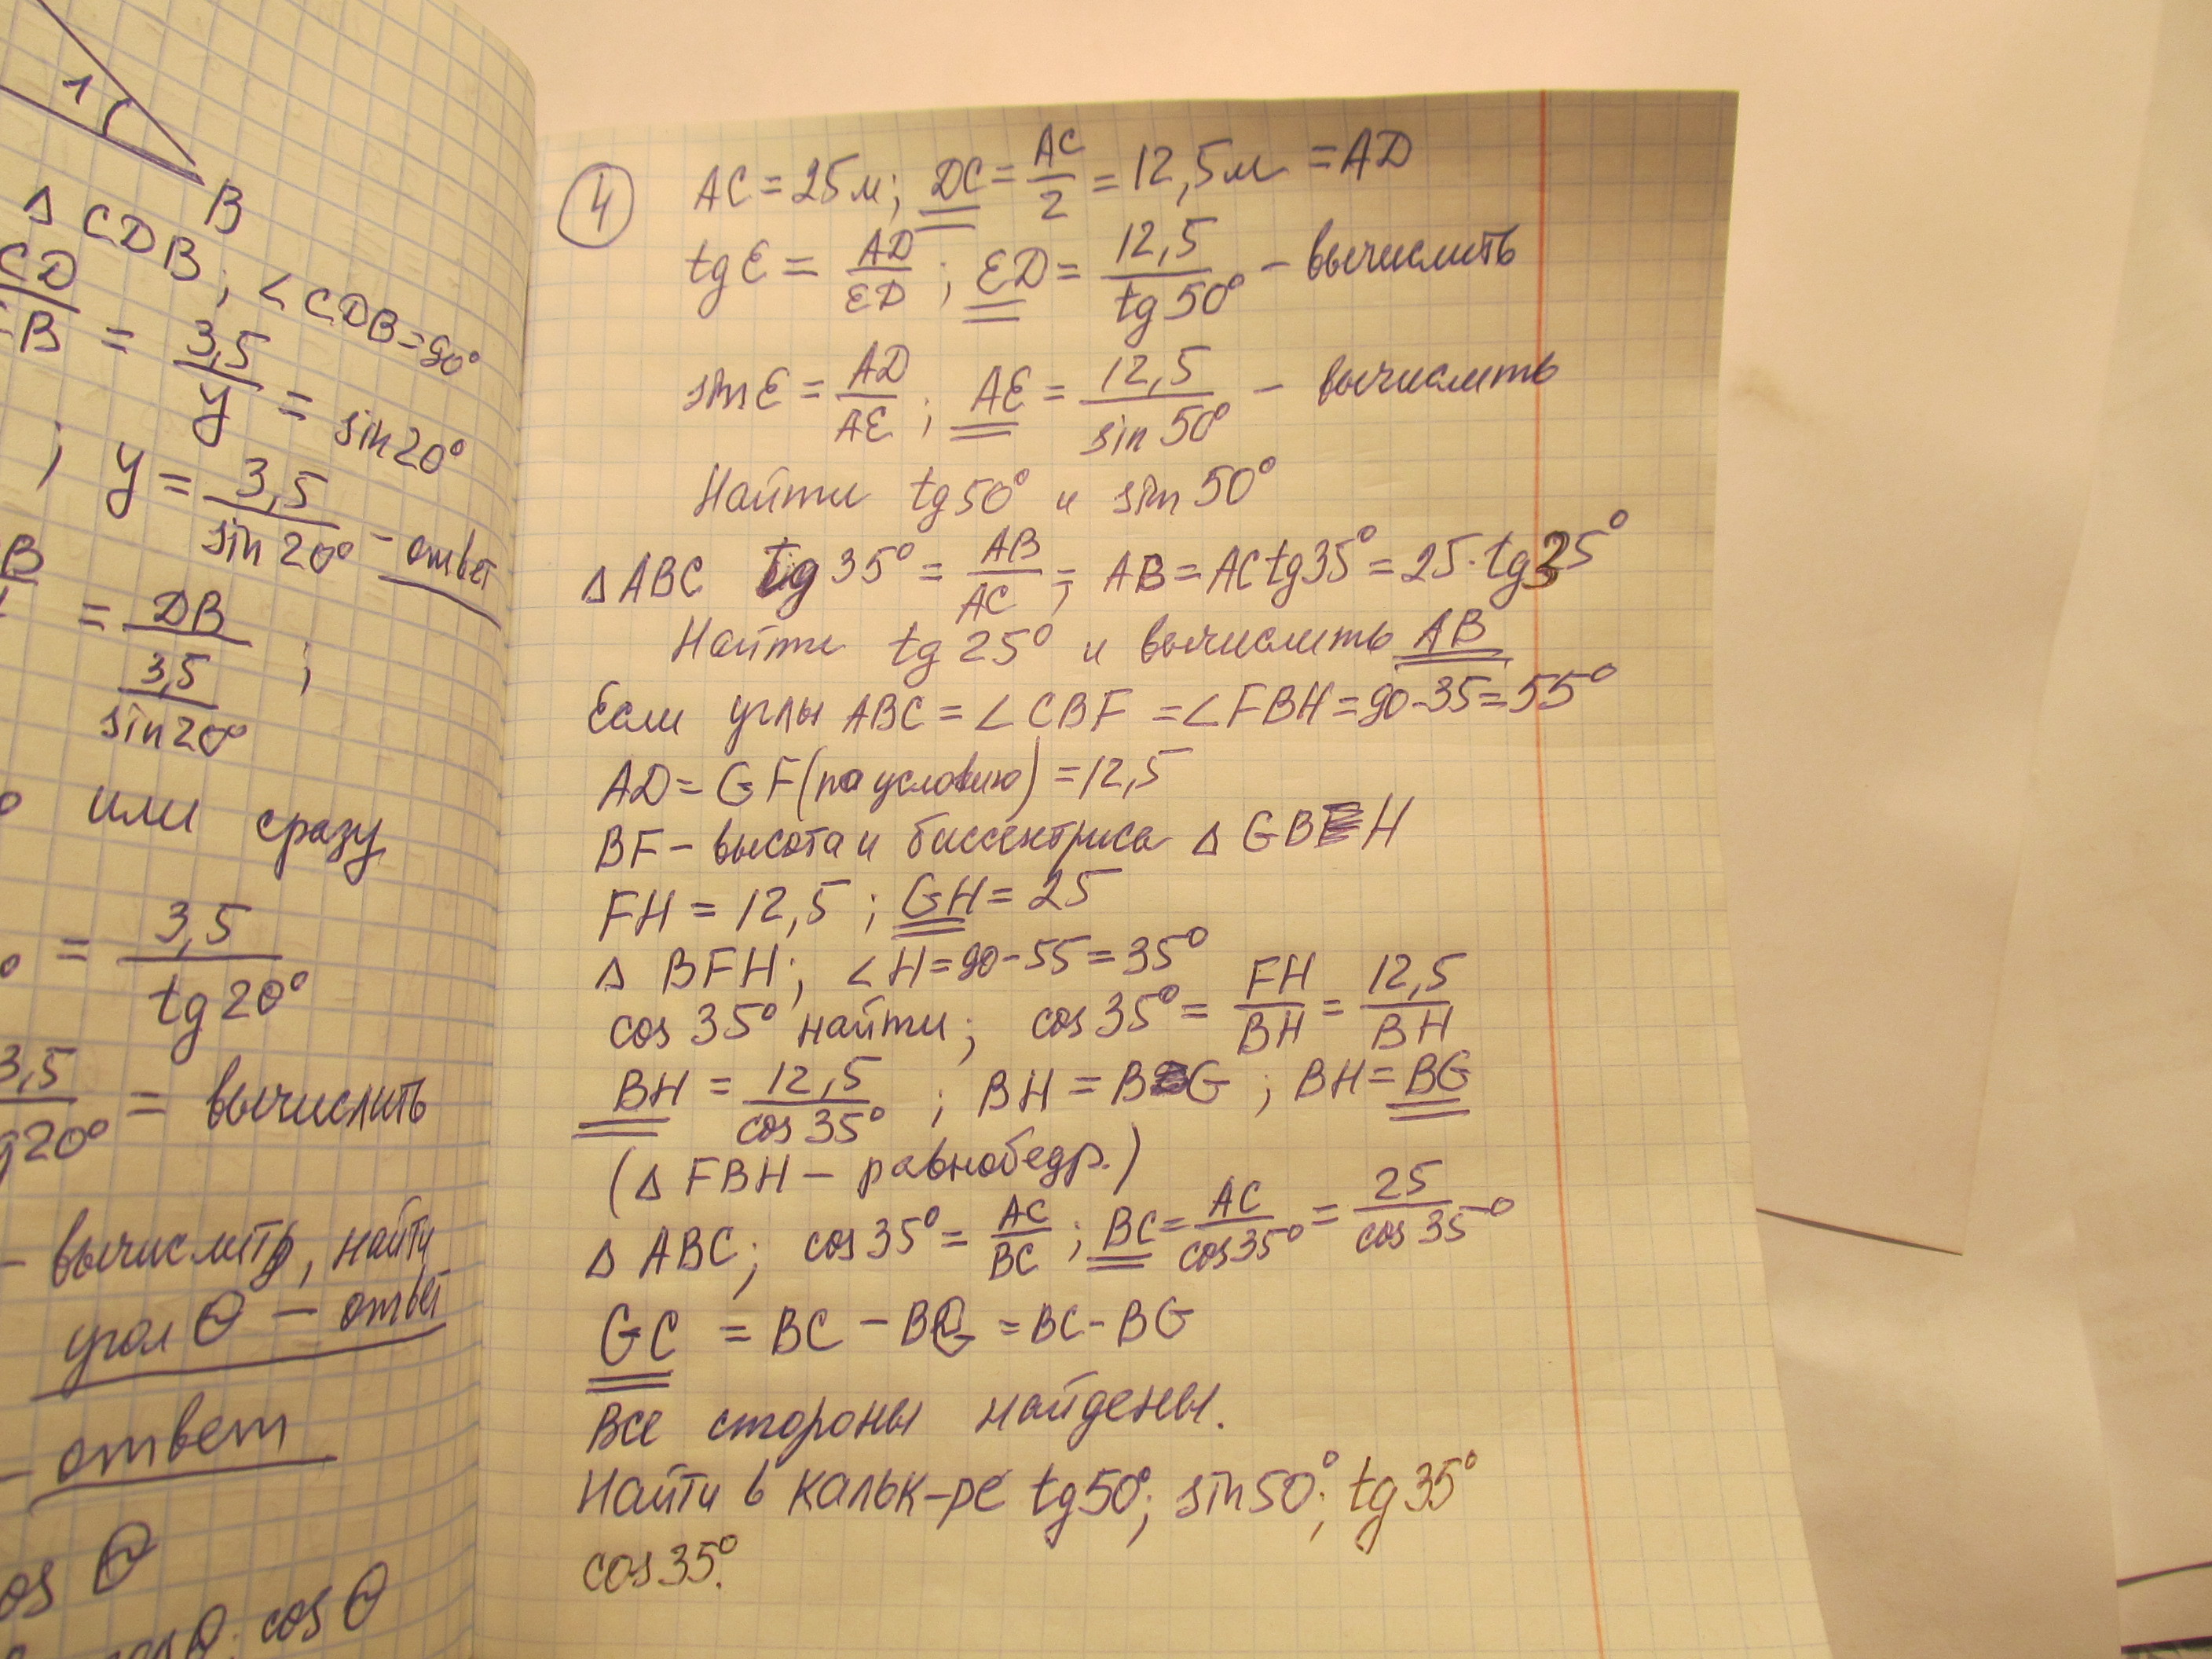 1
B
Δ CDB; ∠CDB=90°
CD/B = 3,5/y = sin20°
; y = 3,5/sin20° – ответ
B = DB/(3,5/sin20°) ;
или сразу
= 3,5/tg20°
3,5/tg20° = вычислить
– вычислить, найти
угол θ – ответ
– ответ
cos θ
cosθ; cosθ
④ AC = 25м; DC = AC/2 = 12,5м = AD
tgE = AD/ED ; ED = 12,5/tg50° – вычислить
sinE = AD/AE ; AE = 12,5/sin50° – вычислить
Найти tg50° и sin50°
Δ ABC tg35° = AB/AC ; AB = ACtg35° = 25·tg35°
Найти tg25° и вычислить AB
Если углы ABC = ∠CBF = ∠FBH = 90-35 = 55°
AD = GF (по условию) = 12,5
BF – высота и биссектриса Δ GBH
FH = 12,5 ; GH = 25
Δ BFH; ∠H = 90-55 = 35°
cos35° найти; cos35° = FH/BH = 12,5/BH
BH = 12,5/cos35° ; BH = BG ; BH = BG
(Δ FBH – равнобедр.)
Δ ABC; cos35° = AC/BC ; BC = AC/cos35° = 25/cos35°
GC = BC – BG = BC - BG
Все стороны найдены.
Найти в кальк-ре tg50°; sin50°; tg35°
cos35°.